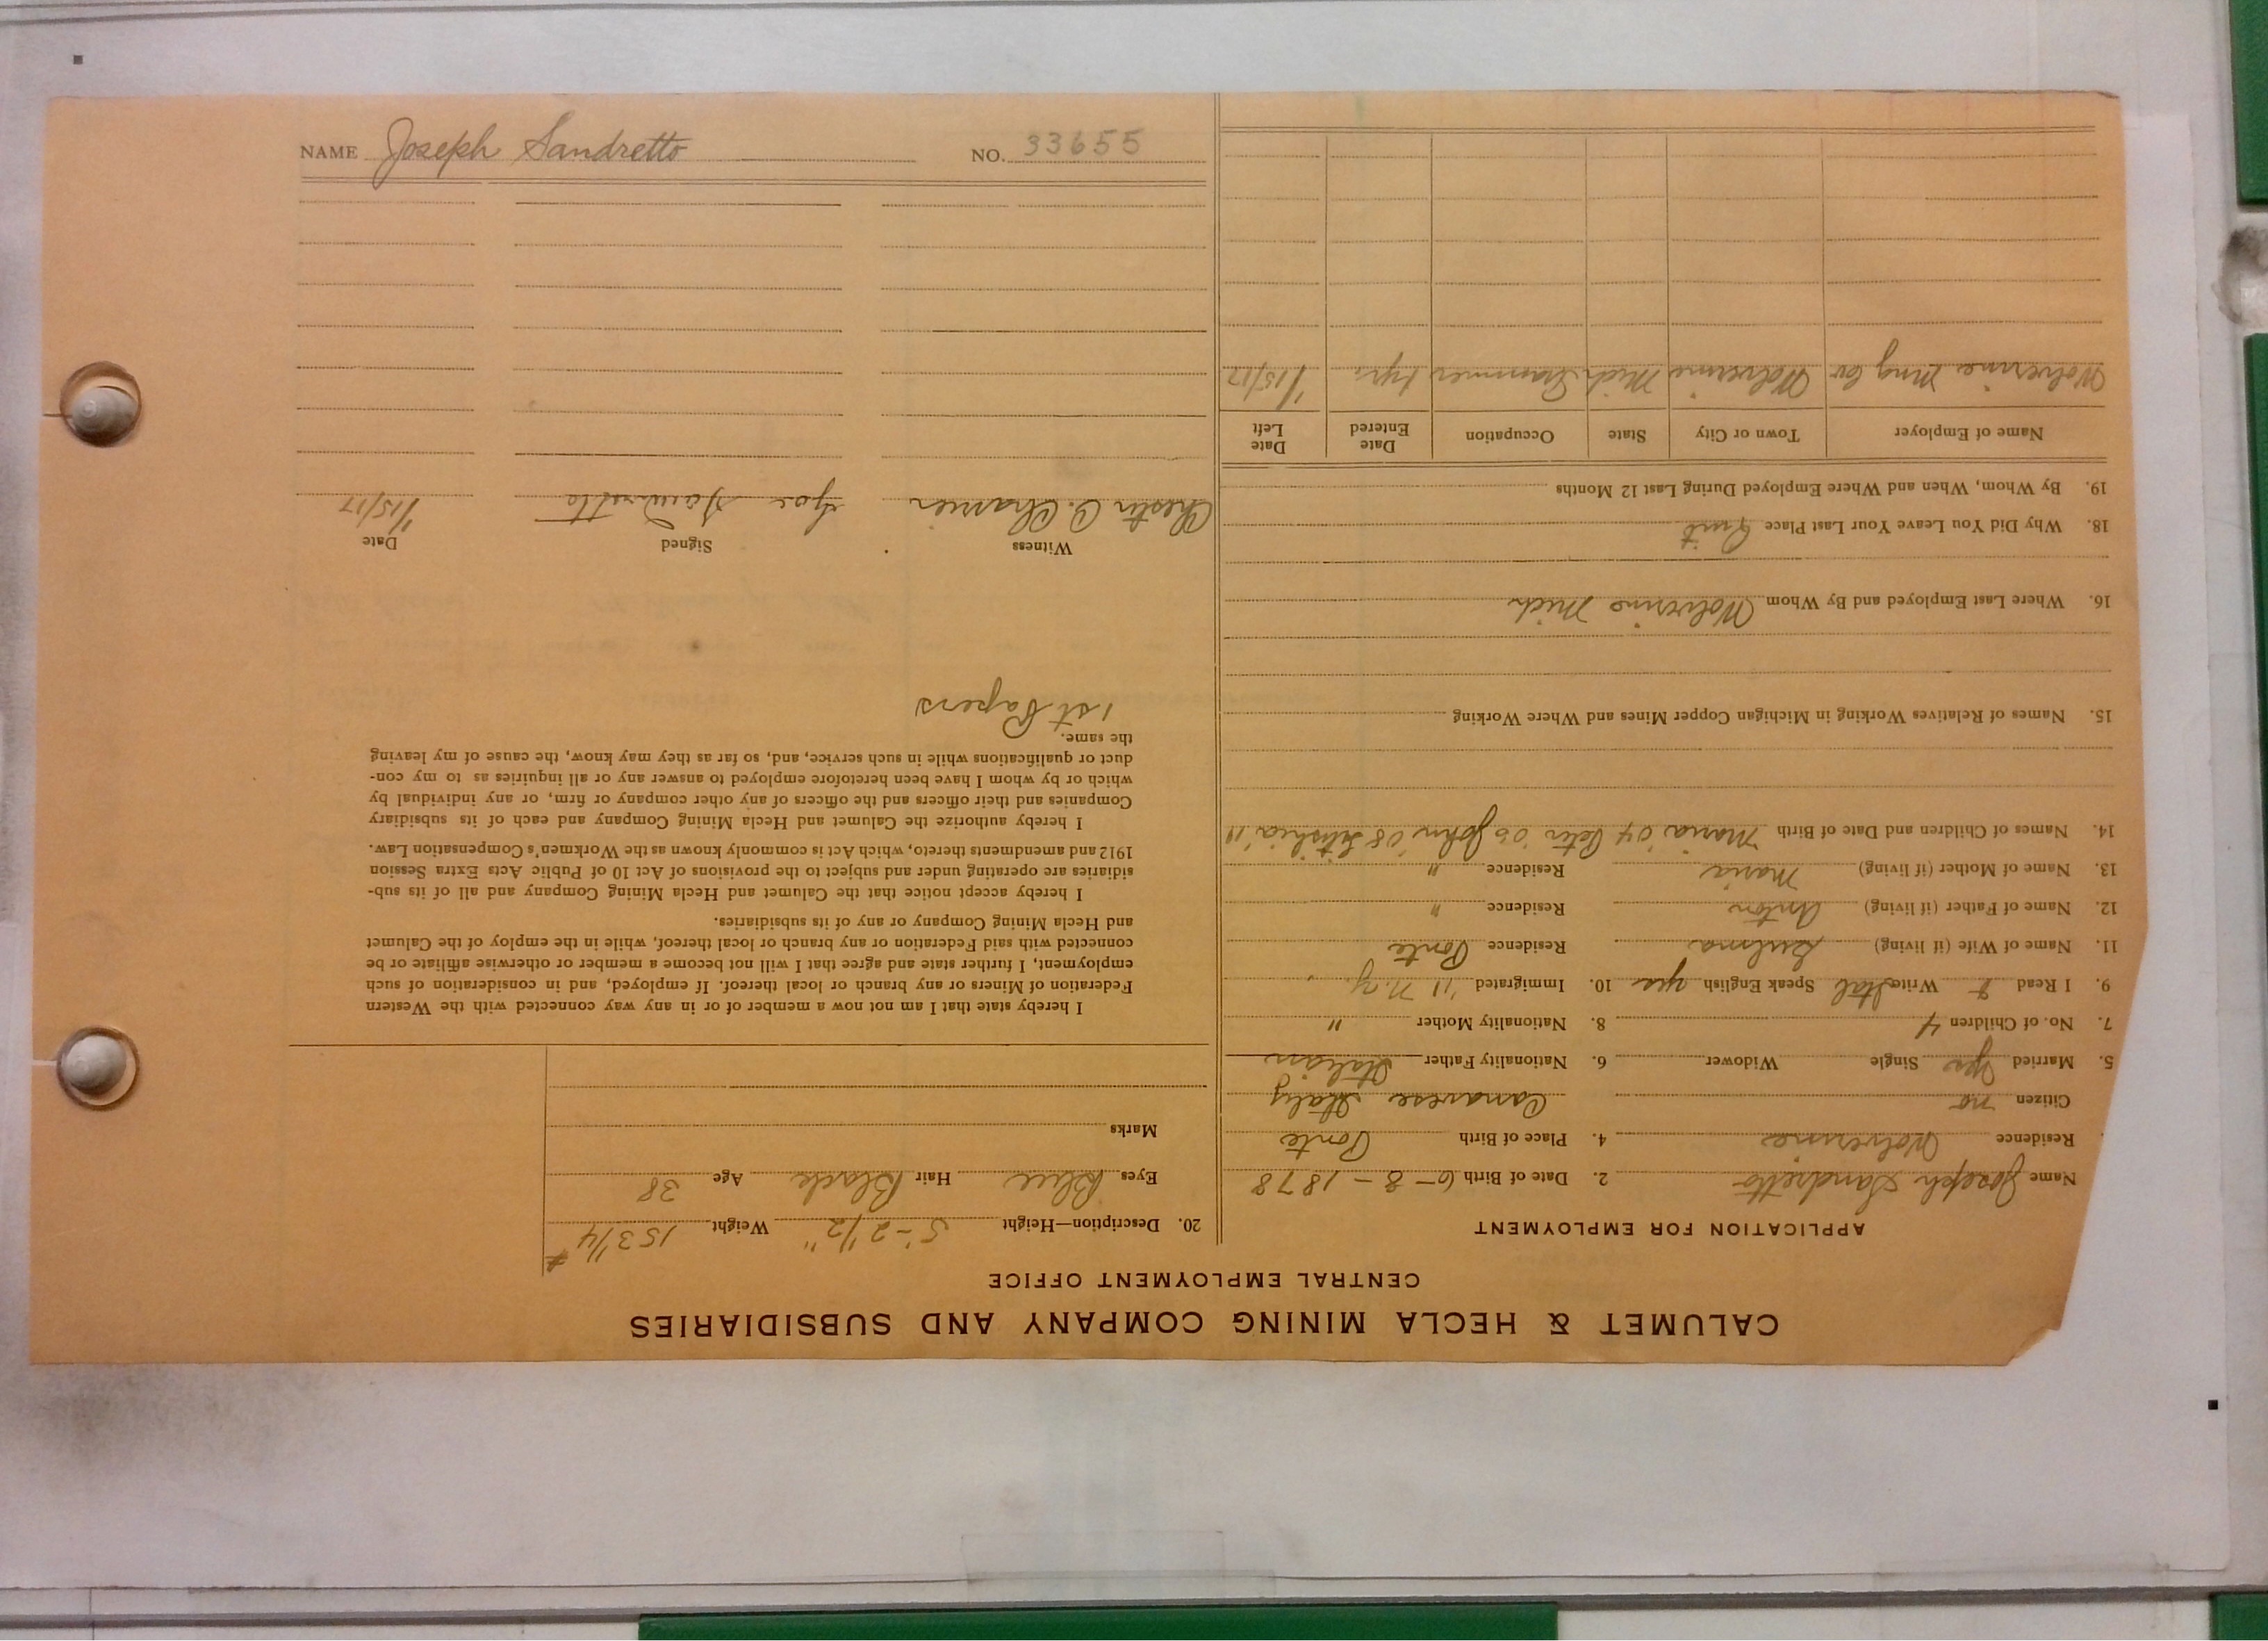 NAME Joseph Sandretto NO. 33655
CALUMET & HECLA MINING COMPANY AND SUBSIDIARIES
CENTRAL EMPLOYMENT OFFICE
APPLICATION FOR EMPLOYMENT
Name Joseph Sandretto 2. Date of Birth 6-8-1878
Residence Wolverine 4. Place of Birth Ponte
Citizen no Canavese Italy
5. Married Yes Single Widower 6. Nationality Father Italian
7. No. of Children 4 8. Nationality Mother "
9. I Read & Write Ital Speak English yes 10. Immigrated '11 N.Y.
11. Name of Wife (if living) Residence Ponte
12. Name of Father (if living) Anton Residence "
13. Name of Mother (if living) Maria Residence "
14. Names of Children and Date of Birth Maria '04 Peter '05 John '08 '11
15. Names of Relatives Working in Michigan Copper Mines and Where Working
16. Where Last Employed and By Whom Wolverine Mich
18. Why Did You Leave Your Last Place Quit
19. By Whom, When and Where Employed During Last 12 Months
Name of Employer Town or City State Occupation Date Entered Date Left
Wolverine Mng Co Wolverine Mich Trammer 1/15/17
20. Description—Height 5'-2 1/2" Weight 153 1/4 #
Eyes Blue Hair Black Age 38
Marks
I hereby state that I am not now a member of or in any way connected with the Western
Federation of Miners or any branch or local thereof. If employed, and in consideration of such
employment, I further state and agree that I will not become a member or otherwise affiliate or be
connected with said Federation or any branch or local thereof, while in the employ of the Calumet
and Hecla Mining Company or any of its subsidiaries.
I hereby accept notice that the Calumet and Hecla Mining Company and all of its sub-
sidiaries are operating under and subject to the provisions of Act 10 of Public Acts Extra Session
1912 and amendments thereto, which Act is commonly known as the Workmen's Compensation Law.
I hereby authorize the Calumet and Hecla Mining Company and each of its subsidiary
Companies and their officers and the officers of any other company or firm, or any individual by
which or by whom I have been heretofore employed to answer any or all inquiries as to my con-
duct or qualifications while in such service, and, so far as they may know, the cause of my leaving
the same.
1st Papers
Witness Signed Date
Chester C. Joe Sandretto 1/15/17